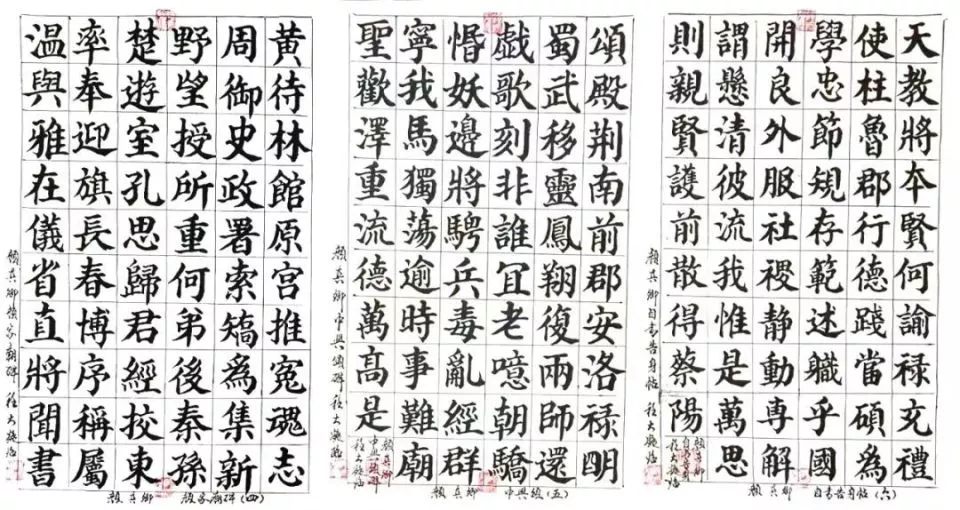 黄待林館原宮推寃魂志
周御史政署索矯為集新
野望授所重何弟後秦孫
楚遊室孔思歸君經挍東
率奉迎旗長春博序稱屬
温與雅在儀省直將聞書
顏真卿顏家廟碑 程大臨
顏真卿 顏家廟碑(四)
頌殿荆南前郡安洛禄明
蜀武移靈鳳翔復兩師還
戯歌刻非誰宜老噫朝驕
惛妖邊將騁兵毒亂經群
寧我馬獨蕩逾時事難廟
聖歡澤重流德萬高是
顏真卿中興頌碑 程大臨
顏真卿 中興頌(五)
天教將本賢何諭禄充禮
使柱魯郡行德踐當碩為
學忠節規存範述職乎國
開良外服社稷静動専解
謂懸清彼流我惟是萬思
則親賢護前散得蔡陽
顏真卿自書告身帖 程大臨
顏真卿 自書告身帖(六)